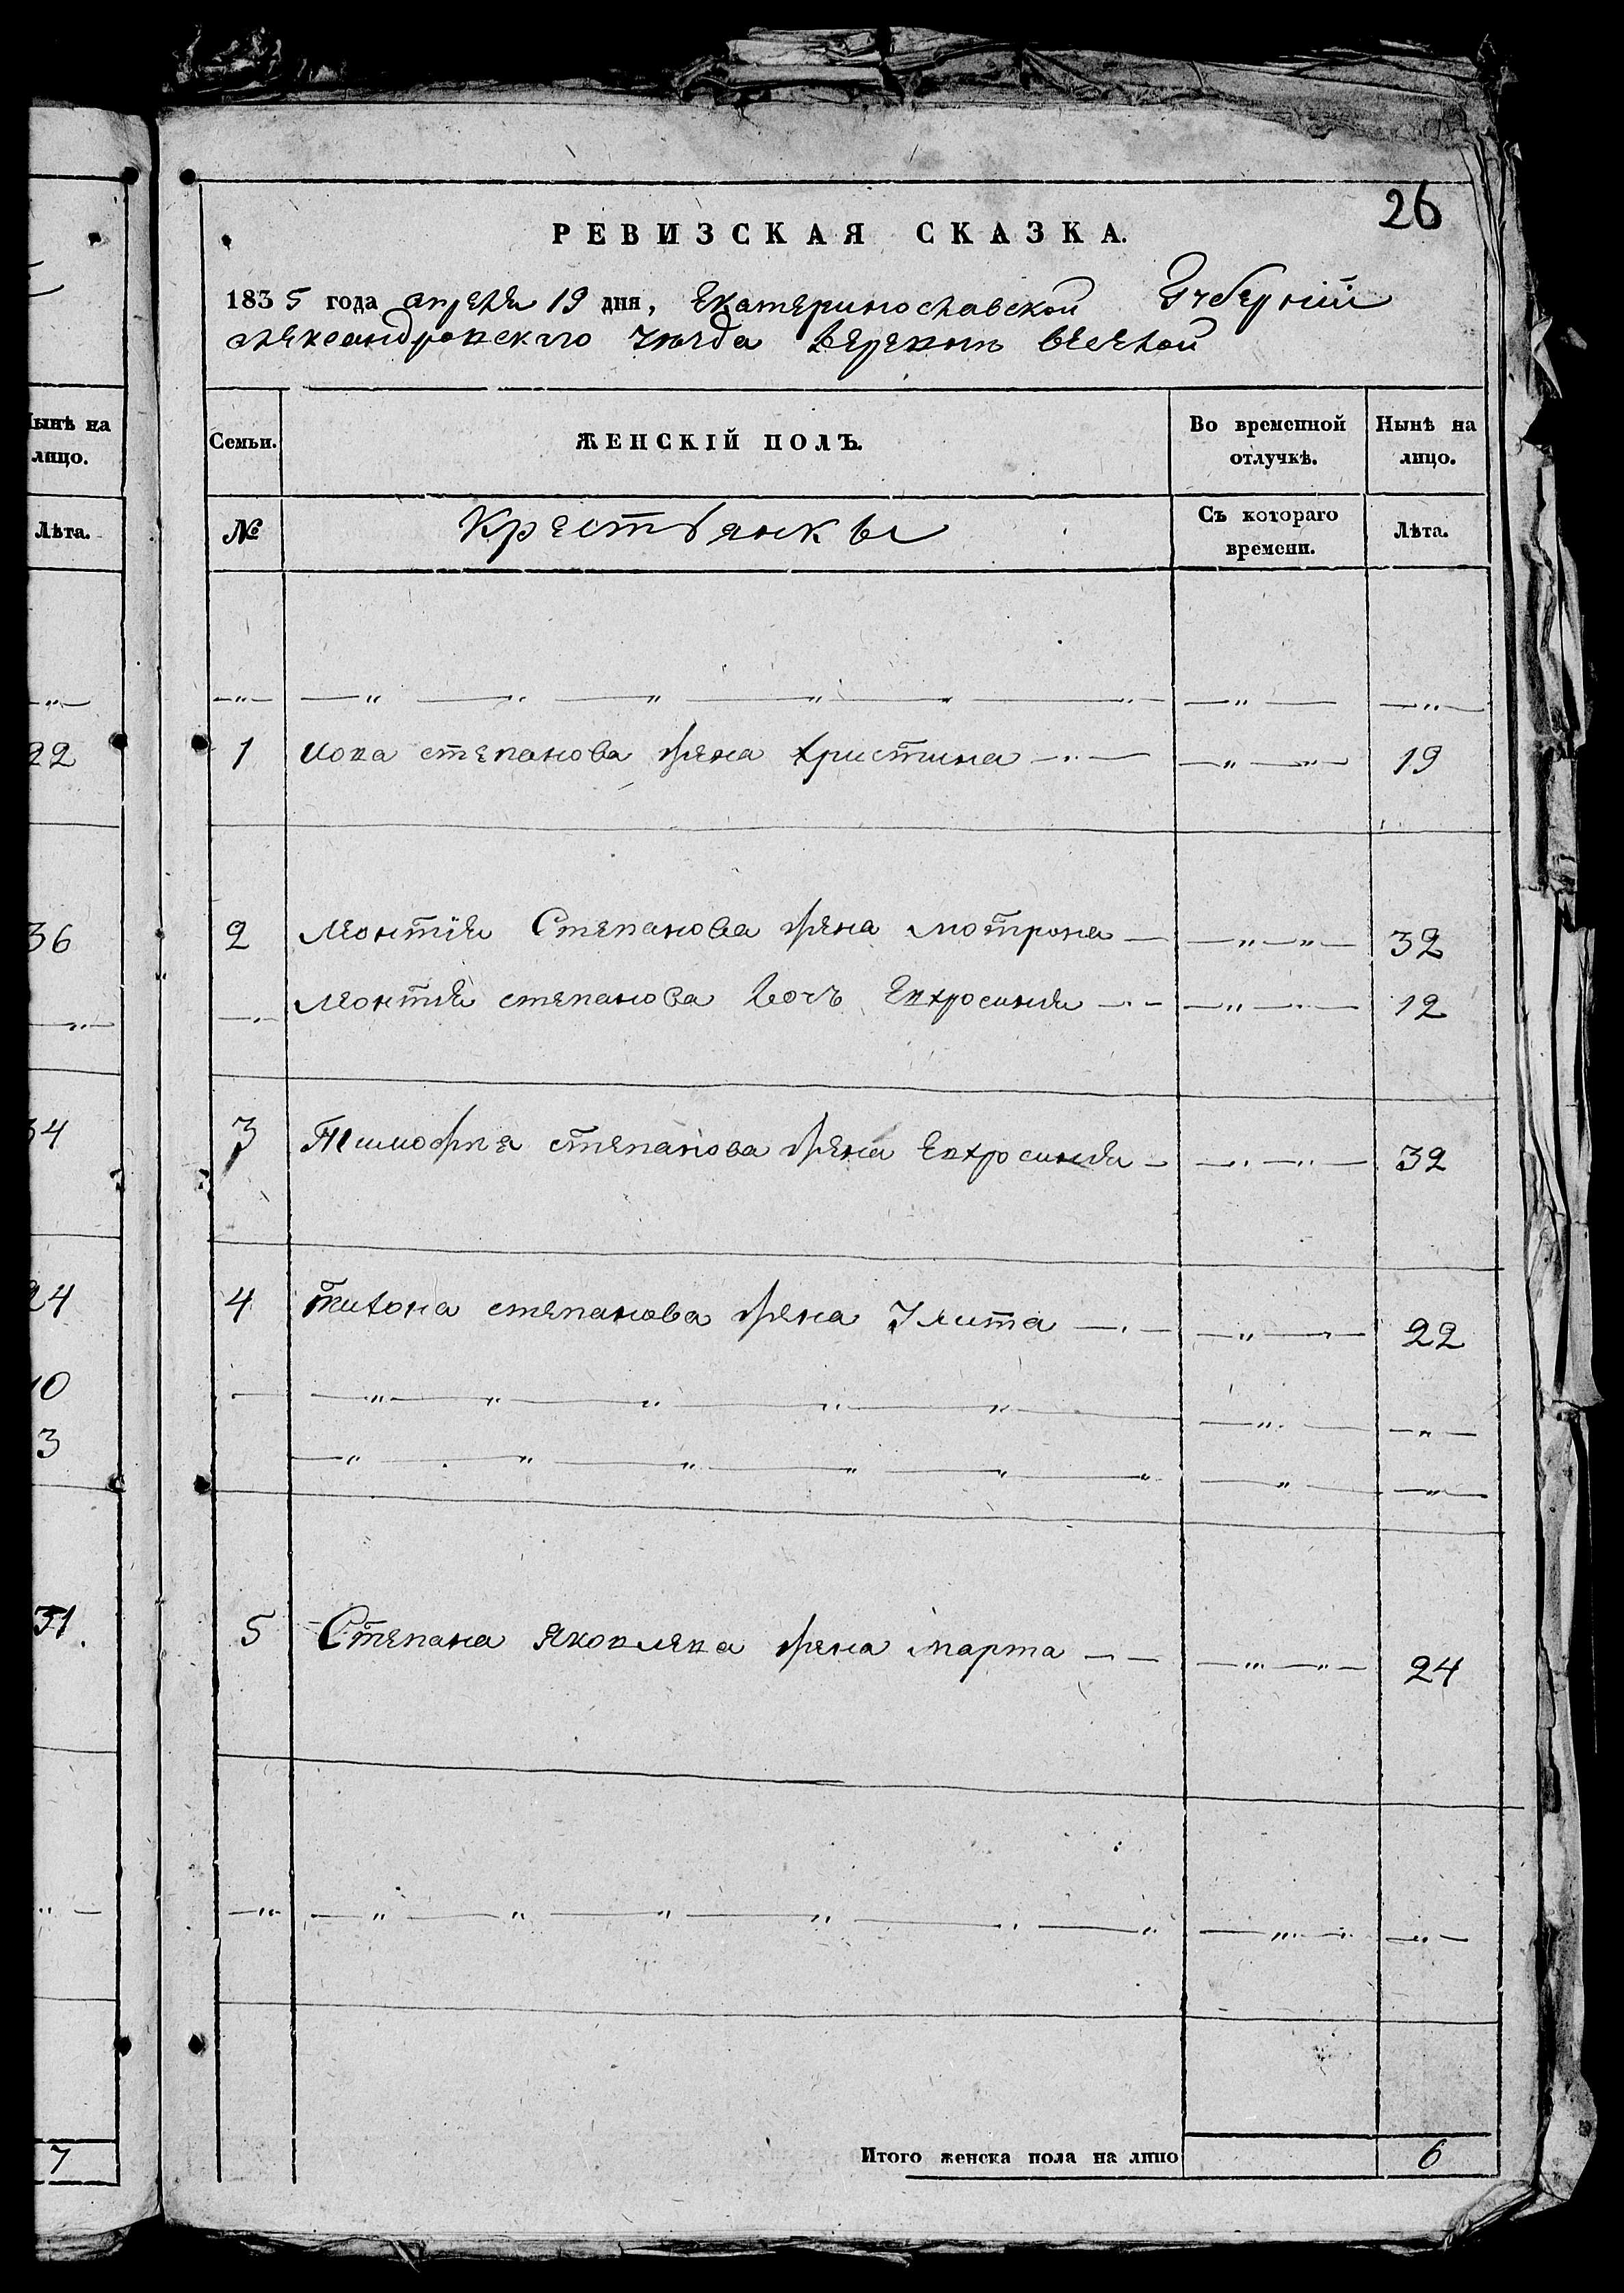 26
РЕВИЗСКАЯ СКАЗКА.
1835 года апреля 19 дня, Екатеринославской Губернии
Александровского уезда деревни веселой
Нынѣ на лицо.
Лѣта.
22
36
34
24
10
3
31
7
Семьи. ЖЕНСКІЙ ПОЛЪ. Во временной отлучкѣ. Нынѣ на лицо.
№ Крестьянкы Съ котораго времени. Лѣта.
1 Иова степанова жена христина 19
2 Леонтия Степанова жена мотрона 32
Леонтия степанова дочь Евхросиния 12
3 Тимофея степанова жена Евхросиния 32
4 тихона степанова жена Улита 22
5 Степана Яковлева жена марта 24
Итого женска пола на лицо 6